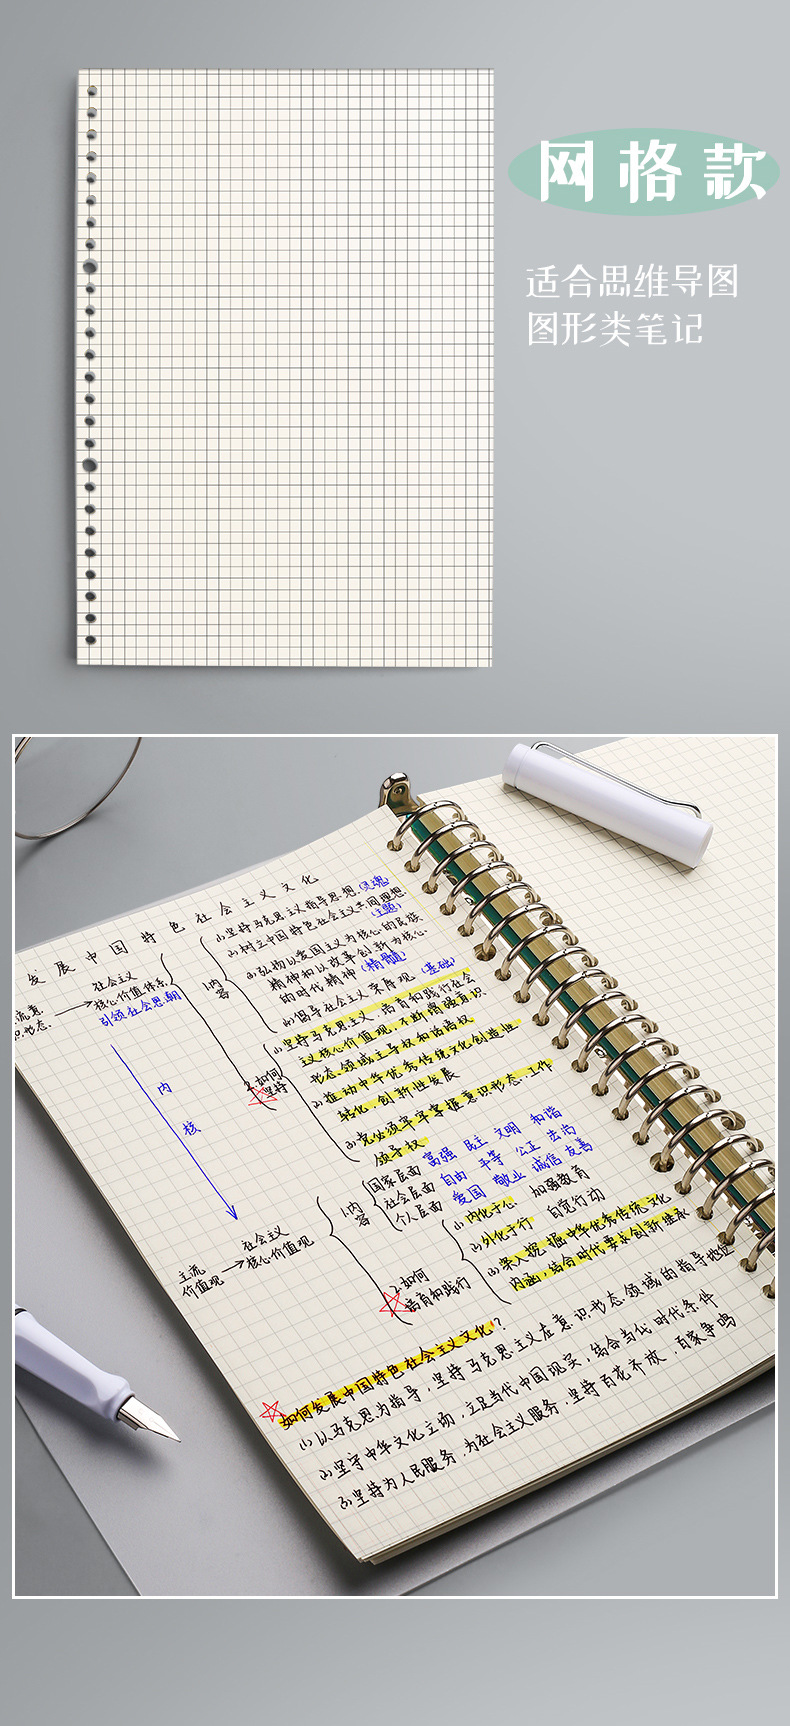 网格款
适合思维导图
图形类笔记
发展中国特色社会主义文化
(1)坚持马克思主义指导思想.(灵魂)
(2)树立中国特色社会主义共同理想
(主题)
(3)弘扬以爱国主义为核心的民族
精神和以改革创新为核心
的时代精神(精髓)
(4)倡导社会主义荣辱观(基础)
1.内容
社会主义
核心价值体系
引领社会思潮
流意
识形态.
(1)坚持马克思主义,培育和践行社会
主义核心价值观,不断增强意识
形态.领域主导权和话语权
(2)推动中华优秀传统文化创造性
转化,创新性发展
(3)党必须牢牢掌握意识形态.工作
领导权
2.如何
坚持
内
核
国家层面 富强 民主 文明 和谐
社会层面 自由 平等 公正 法治
个人层面 爱国 敬业 诚信 友善
1.内容
社会主义
核心价值观
主流
价值观
(1)内化于心 加强教育
(2)外化于行 自觉行动
(3)深入挖掘中华优秀传统文化
内涵,结合时代要求创新继承
2.如何
培育和践行
如何发展中国特色社会主义文化?
(1)以马克思为指导,坚持马克思主义在意识形态.领域的指导地位
(2)坚守中华文化立场,立足当代中国现实,结合当代时代条件
(3)坚持为人民服务,为社会主义服务,坚持百花齐放,百家争鸣